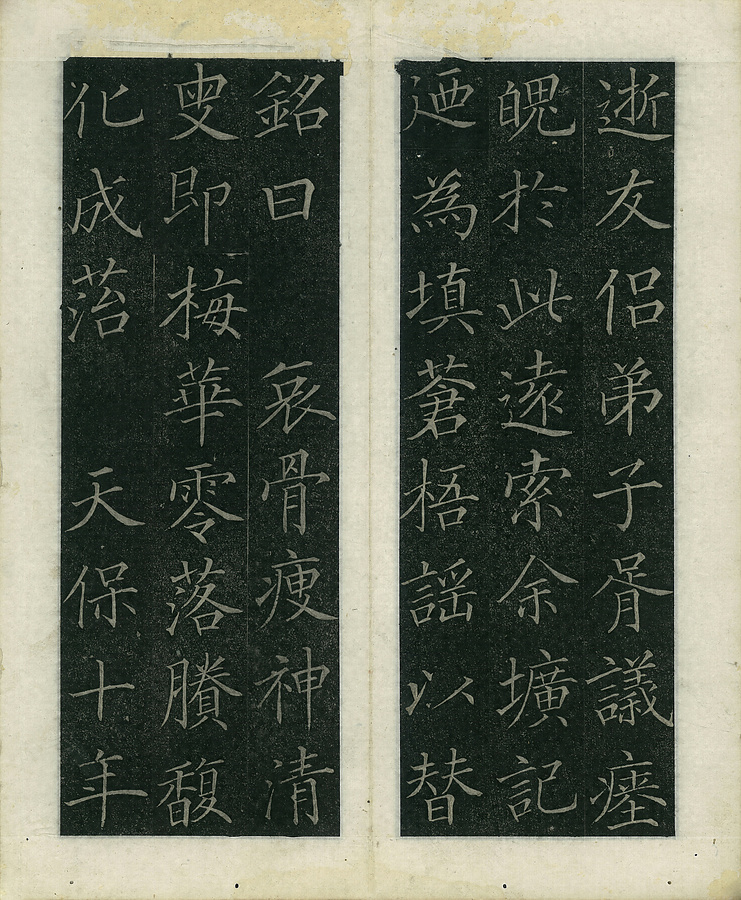 逝友侶弟子胥議瘞
魄於此遠索余壙記
廼為填蒼梧謡以替
銘曰　哀骨瘦神清
叟即梅華零落賸馥
化成菭　天保十年